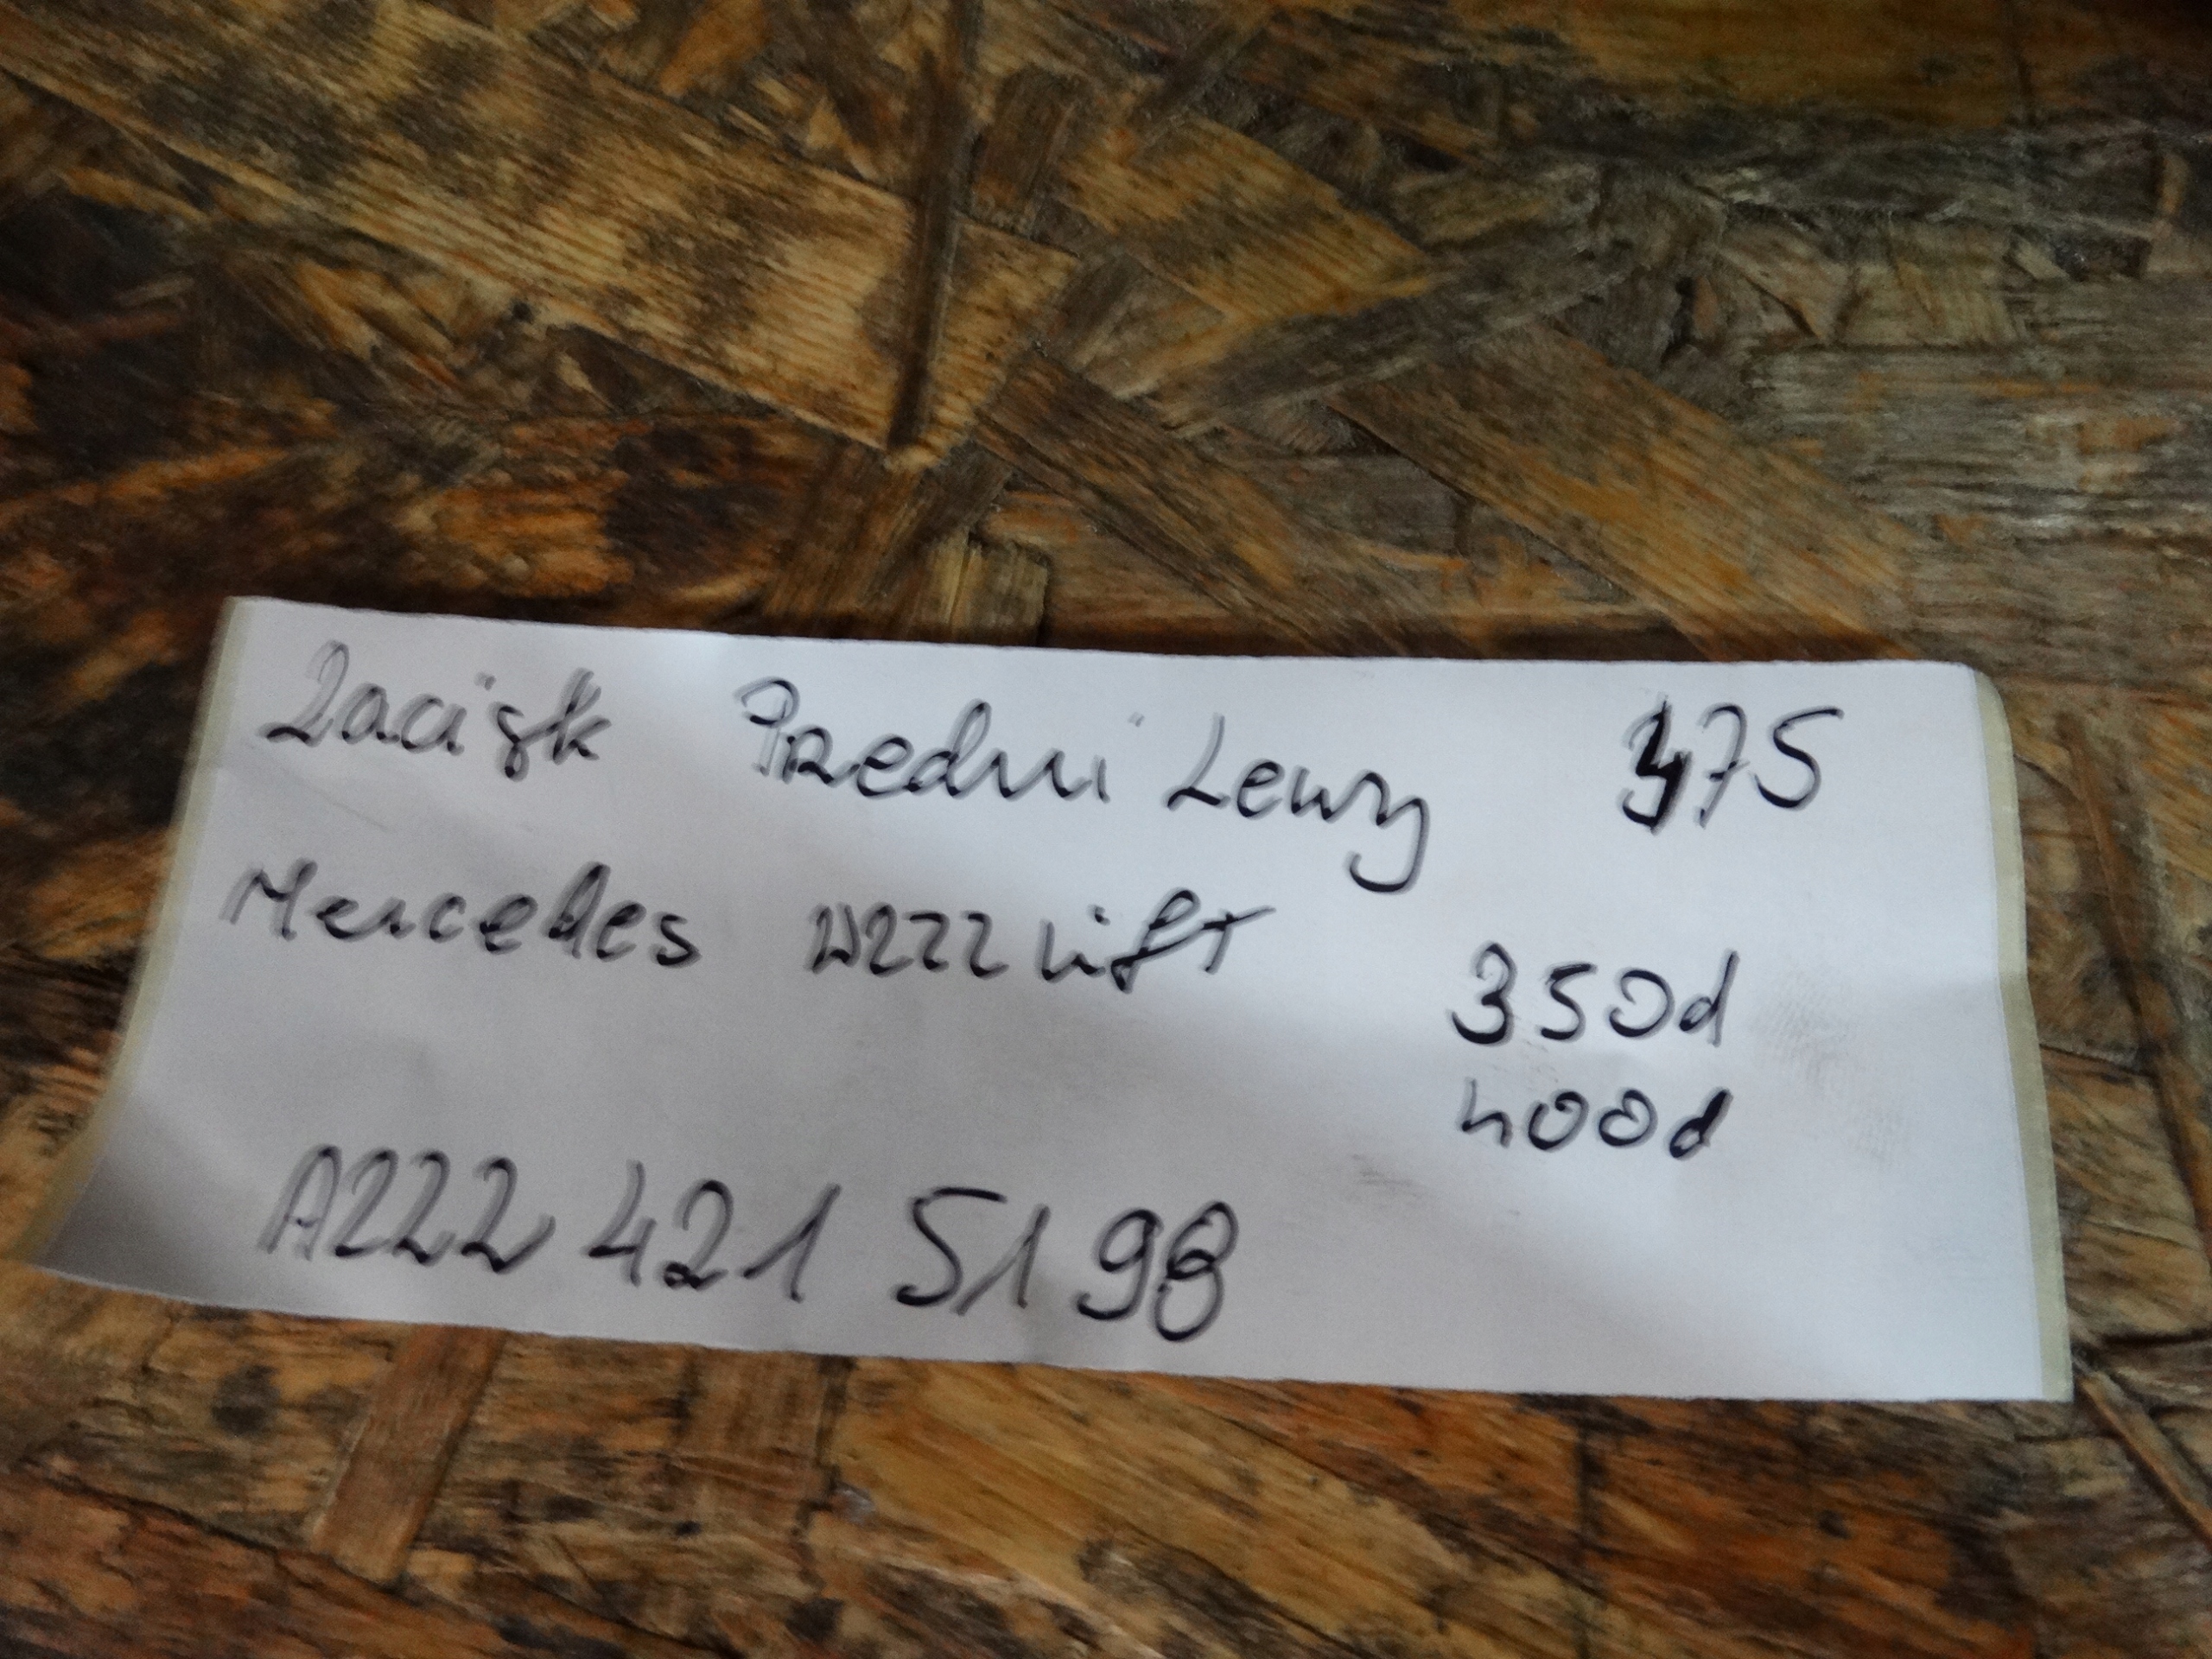 Zacisk Przedni Lewy 475
Mercedes W222 Lift
350d
400d
A222 421 51 98